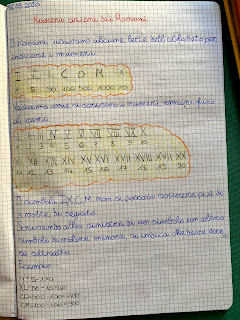 Numeri romani dei Romani
I romani usavano alcune lette dell'alfabeto per
indicare i numeri
I L C D M X
1 5 50 100 500 1000 10
Vediamo come si scrivono i numeri romani fino
al venti
IV V VI VII VIII IX X
1 2 3 4 5 6 7 8 9 10
XI XII XIII XIV XV XVI XVII XVIII XIX XX
11 12 13 14 15 16 17 18 19 20
I simboli I, X, C, M non si possono scrivere più di
3 volte di seguito
Scrivendo alla sinistra di un simbolo un altro
simbolo di valore minore, si indica che deve esse
re sottratto
Esempio: